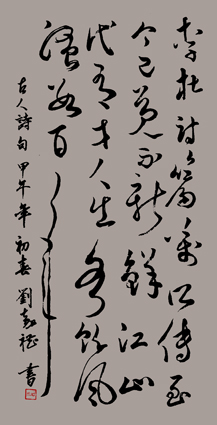 李杜詩篇萬口傳至
今已覺不新鮮江山
代有才人出各領風
騷數百年
古人詩句甲午年初春劉書